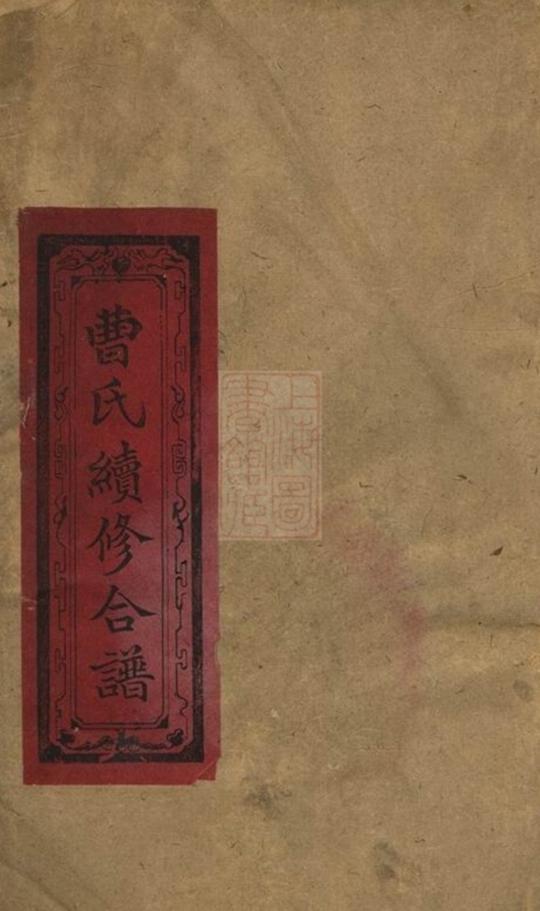 曹氏續修合譜
上海圖
書館藏